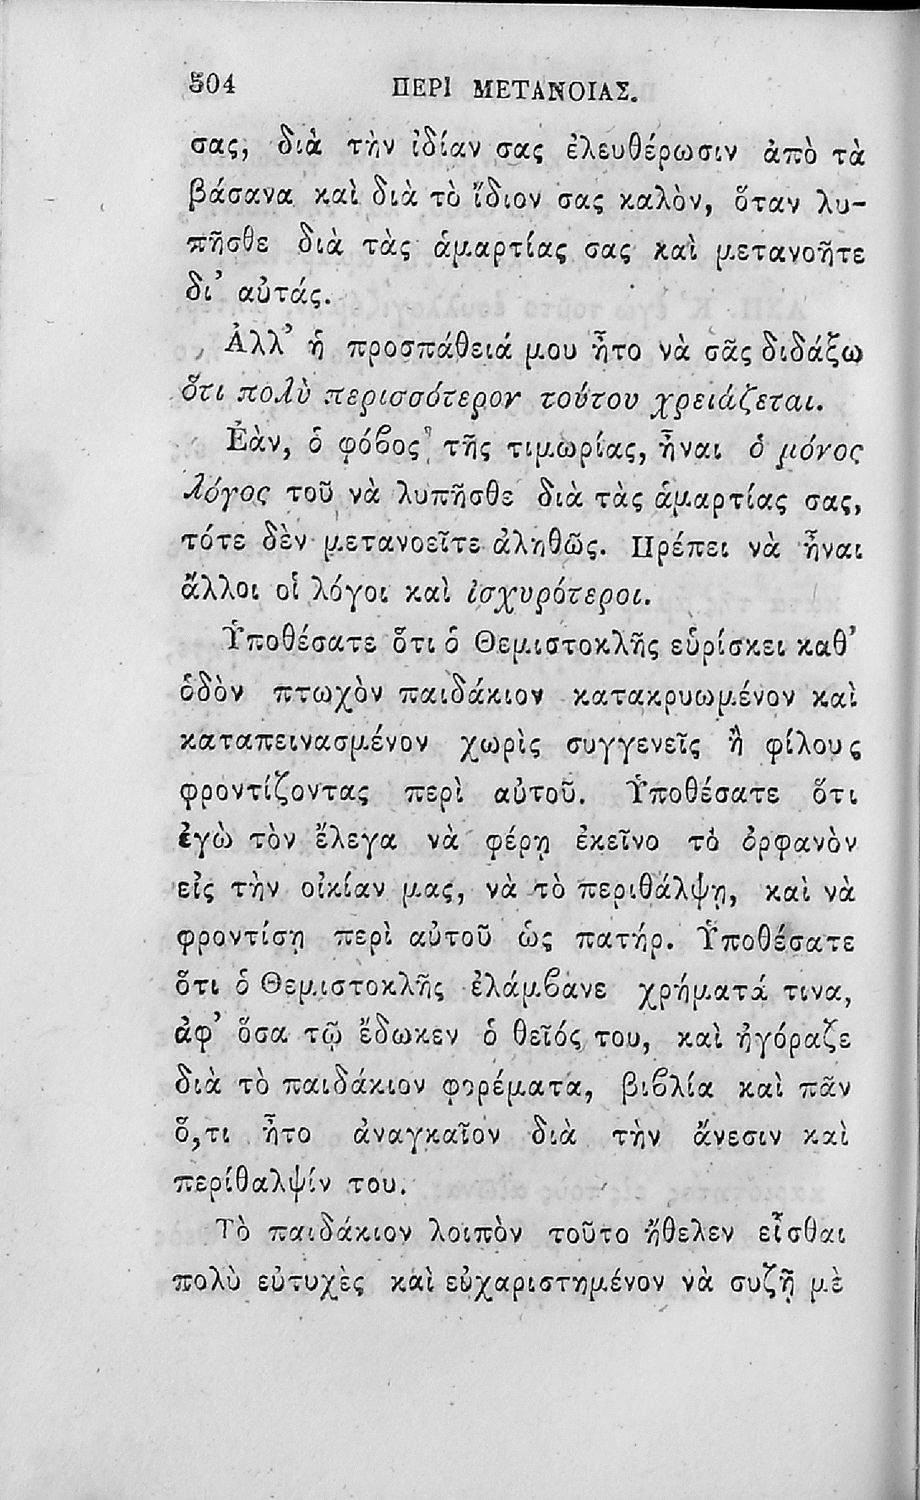 504 ΠΕΡΙ ΜΕΤΑΝΟΙΑΣ.
σας, διὰ τὴν ἰδίαν σας ἐλευθέρωσιν ἀπὸ τὰ
βάσανα καὶ διὰ τὸ ἴδιον σας καλὸν, ὅταν λυ-
πῆσθε διὰ τὰς ἁμαρτίας σας καὶ μετανοῆτε
δι' αὐτάς.
Ἀλλ' ἡ προσπάθειά μου ἦτο νὰ σᾶς διδάξω
ὅτι πολὺ περισσότερον τούτου χρειάζεται.
Ἐὰν, ὁ φόβος τῆς τιμωρίας, ἦναι ὁ μόνος
λόγος τοῦ νὰ λυπῆσθε διὰ τὰς ἁμαρτίας σας,
τότε δὲν μετανοεῖτε ἀληθῶς. Πρέπει νὰ ἦναι
ἄλλοι οἱ λόγοι καὶ ἰσχυρότεροι.
Ὑποθέσατε ὅτι ὁ Θεμιστοκλῆς εὑρίσκει καθ'
ὁδὸν πτωχὸν παιδάκιον κατακρυωμένον καὶ
καταπεινασμένον χωρὶς συγγενεῖς ἢ φίλους
φροντίζοντας περὶ αὐτοῦ. Ὑποθέσατε ὅτι
ἐγὼ τὸν ἔλεγα νὰ φέρῃ ἐκεῖνο τὸ ὀρφανὸν
εἰς τὴν οἰκίαν μας, νὰ τὸ περιθάλψῃ, καὶ νὰ
φροντίσῃ περὶ αὐτοῦ ὡς πατήρ. Ὑποθέσατε
ὅτι ὁ Θεμιστοκλῆς ἐλάμβανε χρήματά τινα,
ἀφ' ὅσα τῷ ἔδωκεν ὁ θεῖός του, καὶ ἠγόραζε
διὰ τὸ παιδάκιον φορέματα, βιβλία καὶ πᾶν
ὅ,τι ἦτο ἀναγκαῖον διὰ τὴν ἄνεσιν καὶ
περίθαλψίν του.
Τὸ παιδάκιον λοιπὸν τοῦτο ἤθελεν εἶσθαι
πολὺ εὐτυχὲς καὶ εὐχαριστημένον νὰ συζῇ μὲ